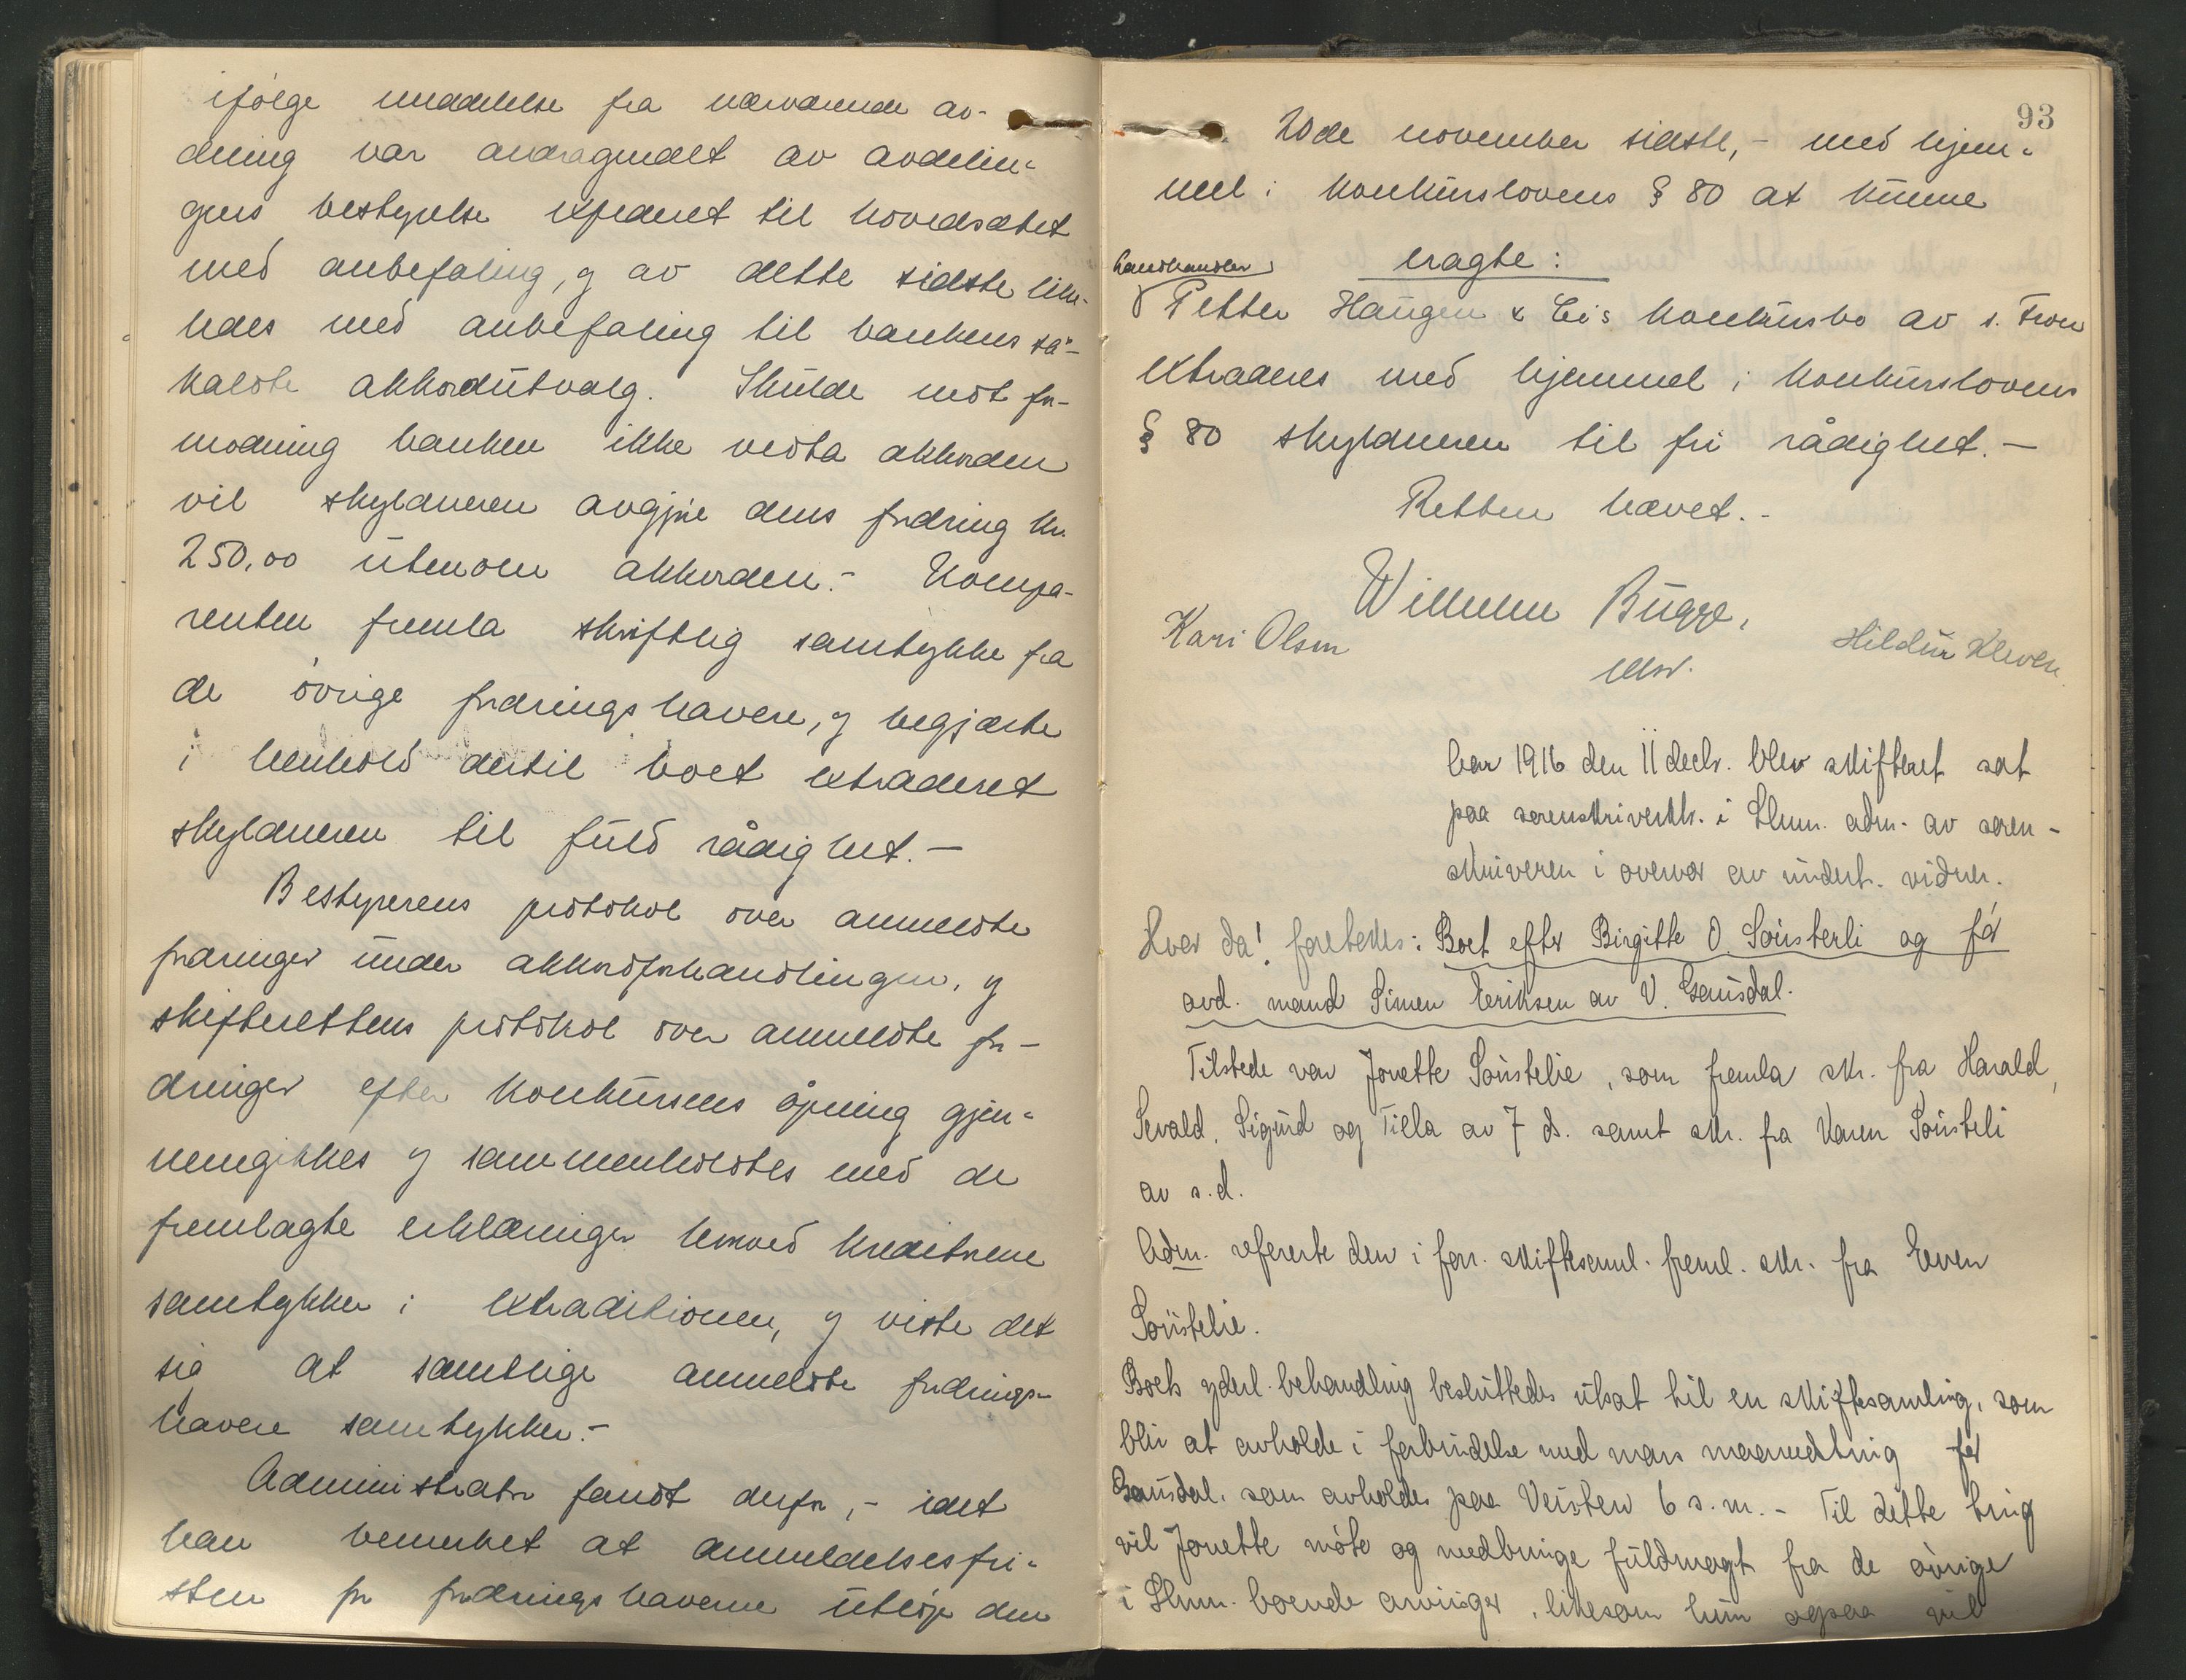 ifølge meddelelse fra nærværende av-
deling var andragendet av avdelin-
gens bestyrelse expederet til hovedsætet
med anbefaling, og av dette sidste like-
ledes med anbefaling til bankens så-
kaldte akkordutvalg. Skulde mot for-
modning banken ikke vedta akkorden
vil skyldneren avgjøre dens fordring kr.
250,00 utenom akkorden.- Kompa-
renten fremla skriftlig samtykke fra
de øvrige fordringshavere, og begjærte
i henhold dertil boet extraderet
skyldneren til fuld rådighet.-
Bestyrerens protokol over anmeldte
fordringer under akkordforhandlingen, og
skifterettens protokol over anmeldte for-
dringer efter konkursens åpning gjen-
nemgikkes og sammenholdtes med de
fremlagte erklæringer hvorved kreditorene
samtykker i extraditionen, og viste det
sig at samtlige anmeldte fordrings-
havere samtykker.-
Administrator fandt derfor,- idet
han bemerket at anmeldelsesfri-
sten for fordringshaverne utløp den
93
20de november sidstl,- med hjem-
mel i konkurslovens § 80 at kunne
eragte:
landhandler
Petter Haugen & Co's konkursbo av s. Fron
extraderes med hjemmel i konkurslovens
§ 80 skyldneren til fri rådighet.-
Retten hævet.-
Wilhelm Bugge,
Kari Olsen Hildur Kleven
cst.
Aar 1916 den 11 decbr. blev skifteret sat
paa sorenskriverktr. i Lhmr. adm. av soren-
skriveren i overvær av undert. vidner.
Hvor da! foretokes: Boet efter Birgitte O. Sørsterli og før
avd. mand Simen Eriksen av V. Gausdal.
Tilstede var Jonette Sørstelie, som fremla skr. fra Harald,
Sevald, Sigurd og Tilla av 7 ds. samt skr. fra Karen Sørsteli
av s.d.
Adm. refererte den i forr. skiftesaml. freml. skr. fra Even
Sørstelie.
Boets yderl. behandling besluttedes utsat til en skiftesamling, som
blir at avholde i forbindelse med mars maanedsting for
Gausdal. som avholdes paa Veisten 6 s.m.- Til dette ting
vil Jonette møte og medbringe fuldmagt fra de øvrige
i Lhmr. boende arvinger, likesom hun ogsaa vil